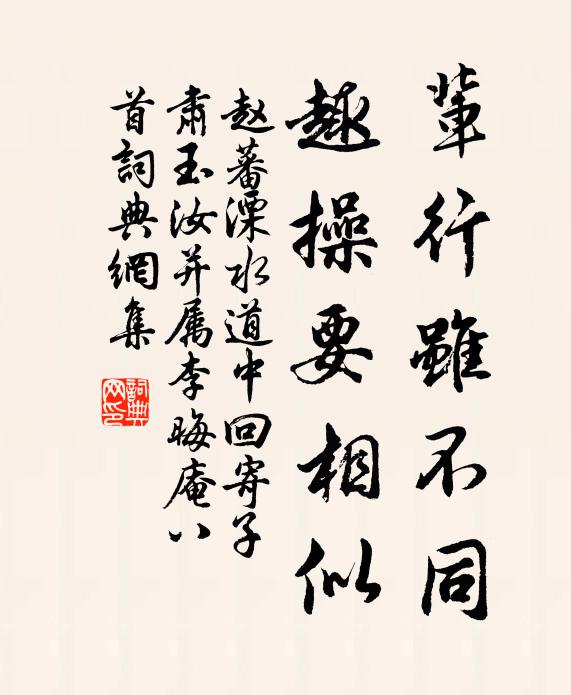 輩行雖不同
趣操要相似
赵蕃溧水道中回寄子
肅玉汝并属李晦庵八
首詞典網集
詞典网印